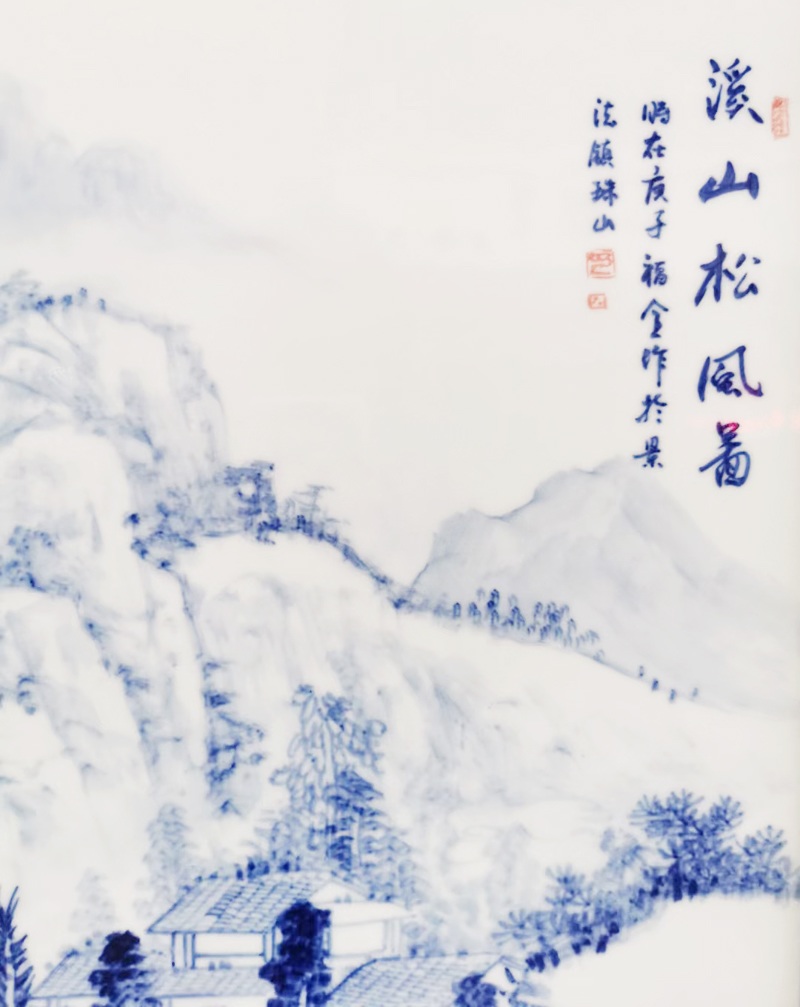 溪山松風啚
時在庚子福全作於景
德鎮珠山